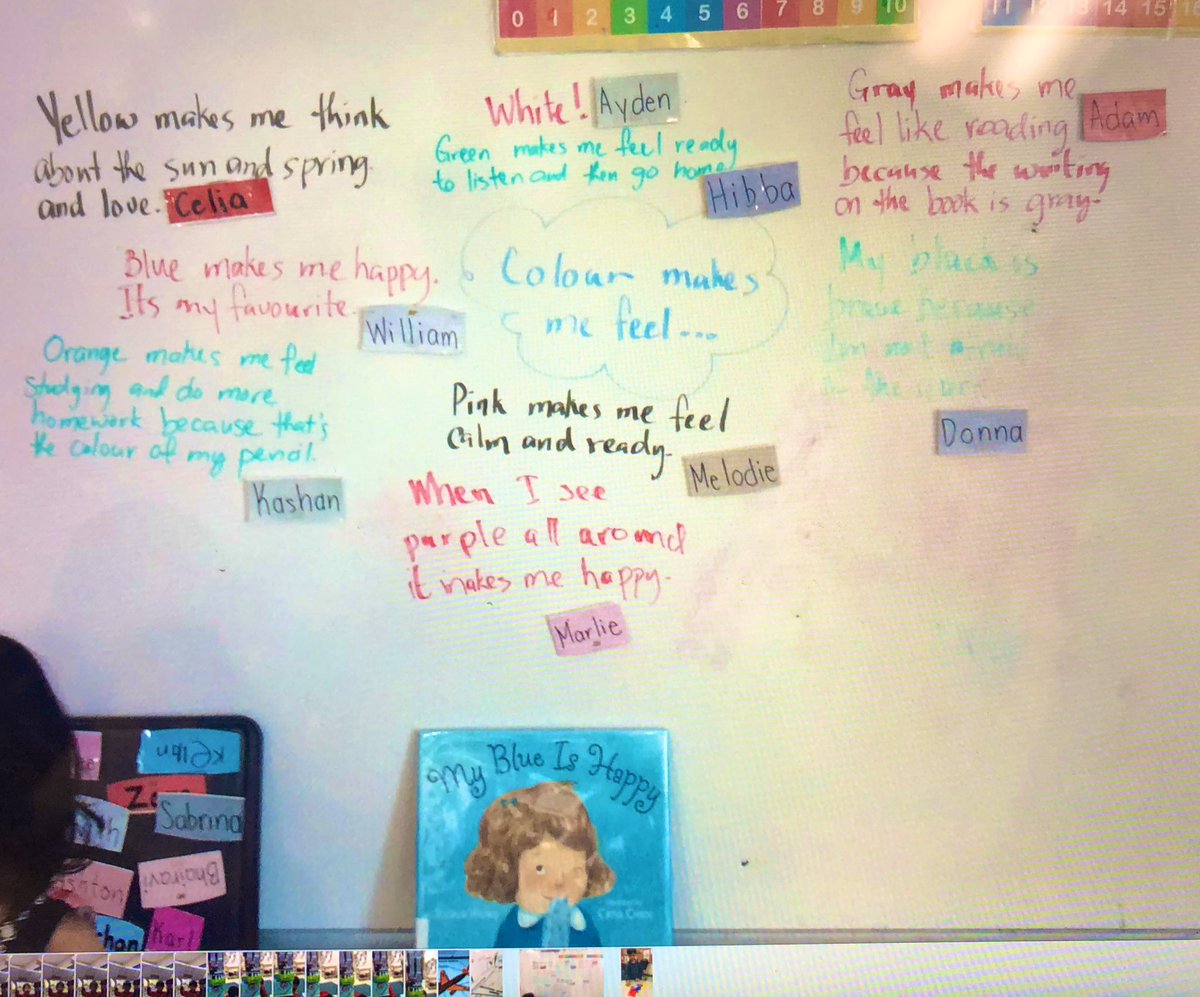 0 1 2 3 4 5 6 7 8 9 10
11 12 13 14 15
Yellow makes me think
about the sun and spring
and love. Celia
White! Ayden
Green makes me feel ready
to listen and then go home
Hibba
Gray makes me
feel like reading Adam
because the writing
on the book is gray.
Blue makes me happy.
Its my favourite.
William
Colour makes
me feel...
My black is
brave because
I'm not
Donna
Orange makes me feel
studying and do more
homework because that's
the colour of my pencil.
Kashan
Pink makes me feel
Calm and ready.
Melodie
When I see
purple all around
it makes me happy.
Marlie
My Blue Is Happy
Sabrina
Bhairavi
Karl